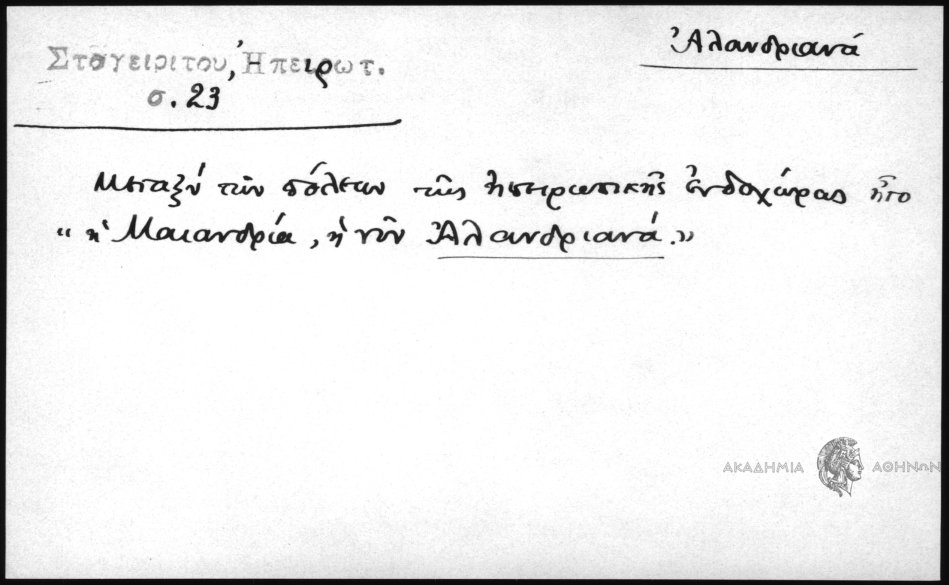 Σταγειρίτου, Ἠπειρωτ.
σ. 23
Ἀλανδριανά
Μεταξὺ τῶν πόλεων τῆς ἠπειρωτικῆς ἐνδοχώρας ἦτο
“ἡ Μαιανδρία, ἡ νῦν Ἀλανδριανά.”
ΑΚΑΔΗΜΙΑ ΑΘΗΝΩΝ